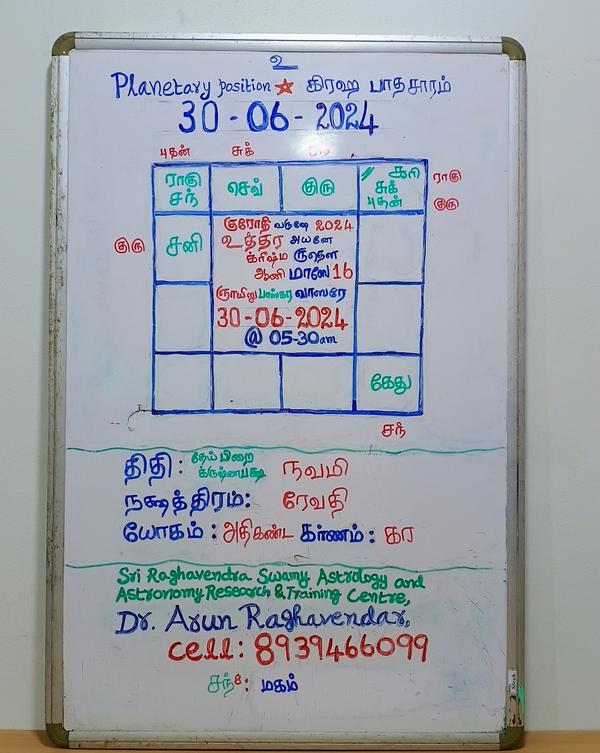 உ
Planetary position கிரஹ பாதசாரம்
30-06-2024
புதன் சுக்
ராகு சந் செவ் குரு சூரி சுக் புதன் ராகு குரு
குரு சனி
குரோதி வருஷ 2024
உத்தர அயனே
க்ரிஷ்ம ருதௌ
ஆனி மாஸே 16
ஞாயிறு பாஸ்கர வாஸரே
30-06-2024
@ 05-30am
கேது
சந்
திதி: தேய்பிறை க்ருஷ்ணபக்ஷ நவமி
நக்ஷத்திரம்: ரேவதி
யோகம்: அதிகண்ட கரணம்: கர
Sri Raghavendra Swamy Astrology and
Astronomy Research & Training Centre,
Dr. Arun Raghavendar,
cell: 8939466099
சந்8: மகம்